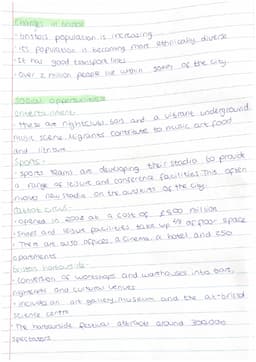 Changes in bristol
· bristols population is increasing
· its population is becoming more ethnically diverse
· It has good transport links
· over 2 million people live within 50km of the city.
social opportunities
Entertainment-
· there are nightclubs, bars and a vibrant underground
music scene. Migrants contribute to music, art, food
and
Sports-
· sports teams are developing their stadia to provide
a range of leisure and conference facilities This often
involves new stadia on the outskirts of the city.
cabbot circus-
· opened in 2008 at a cost of £500 million
· Shops and leisure facilities take up of floor space
· There are also offices, a cinema, a hotel and 250
apartments
bristols harbourside-
· conversion of workshops and warehouses into bars,
nightclubs and cultural venues
· includes an art gallery, museum and the at-bristol
science centre
· The harbourside festival attracts around 300,000
spectators